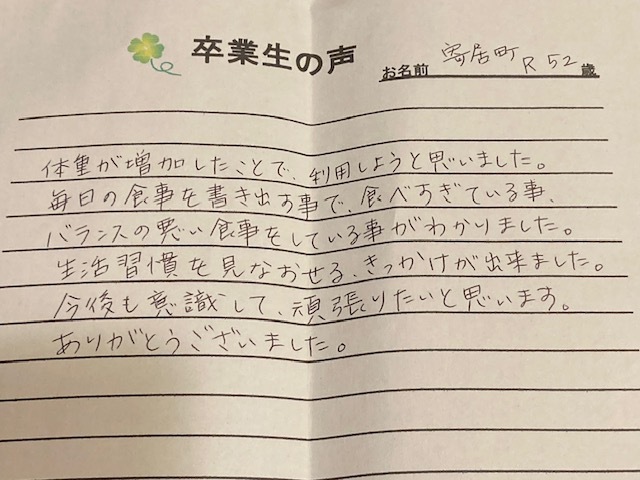 卒業生の声
お名前 寄居町 R 52歳
体重が増加したことで、利用しようと思いました。
毎日の食事を書き出す事で、食べすぎている事、
バランスの悪い食事をしている事がわかりました。
生活習慣を見なおせる、きっかけが出来ました。
今後も意識して、頑張りたいと思います。
ありがとうございました。